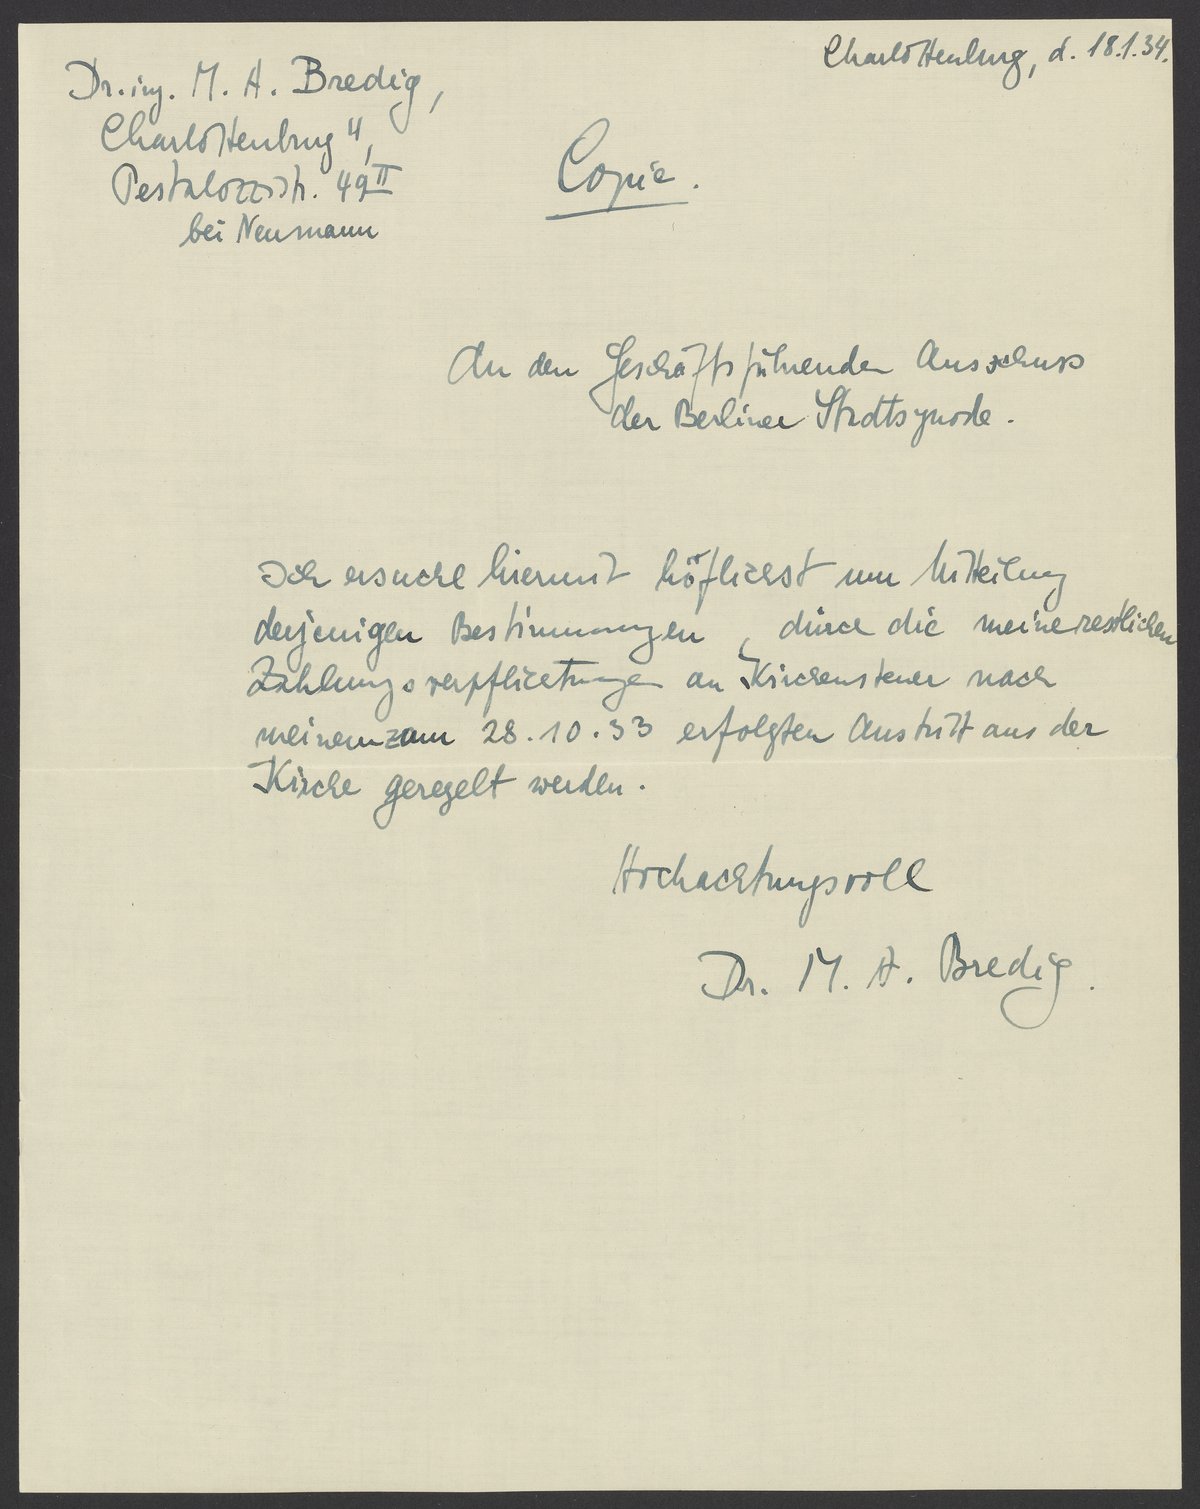 Charlottenburg, d. 18.1.34.
Dr. ing. M. A. Bredig,
Charlottenburg 4,
Pestalozzistr. 49 II
bei Neumann
Copie.
An den Geschäftsführenden Ausschuss
der Berliner Stadtsynode.
Ich ersuche hiermit höflichst um Mitteilung
derjenigen Bestimmungen, durch die meine restlichen
Zahlungsverpflichtungen an Kirchensteuer nach
meinem zum 28.10.33 erfolgten Austritt aus der
Kirche geregelt werden.
Hochachtungsvoll
Dr. M. A. Bredig.